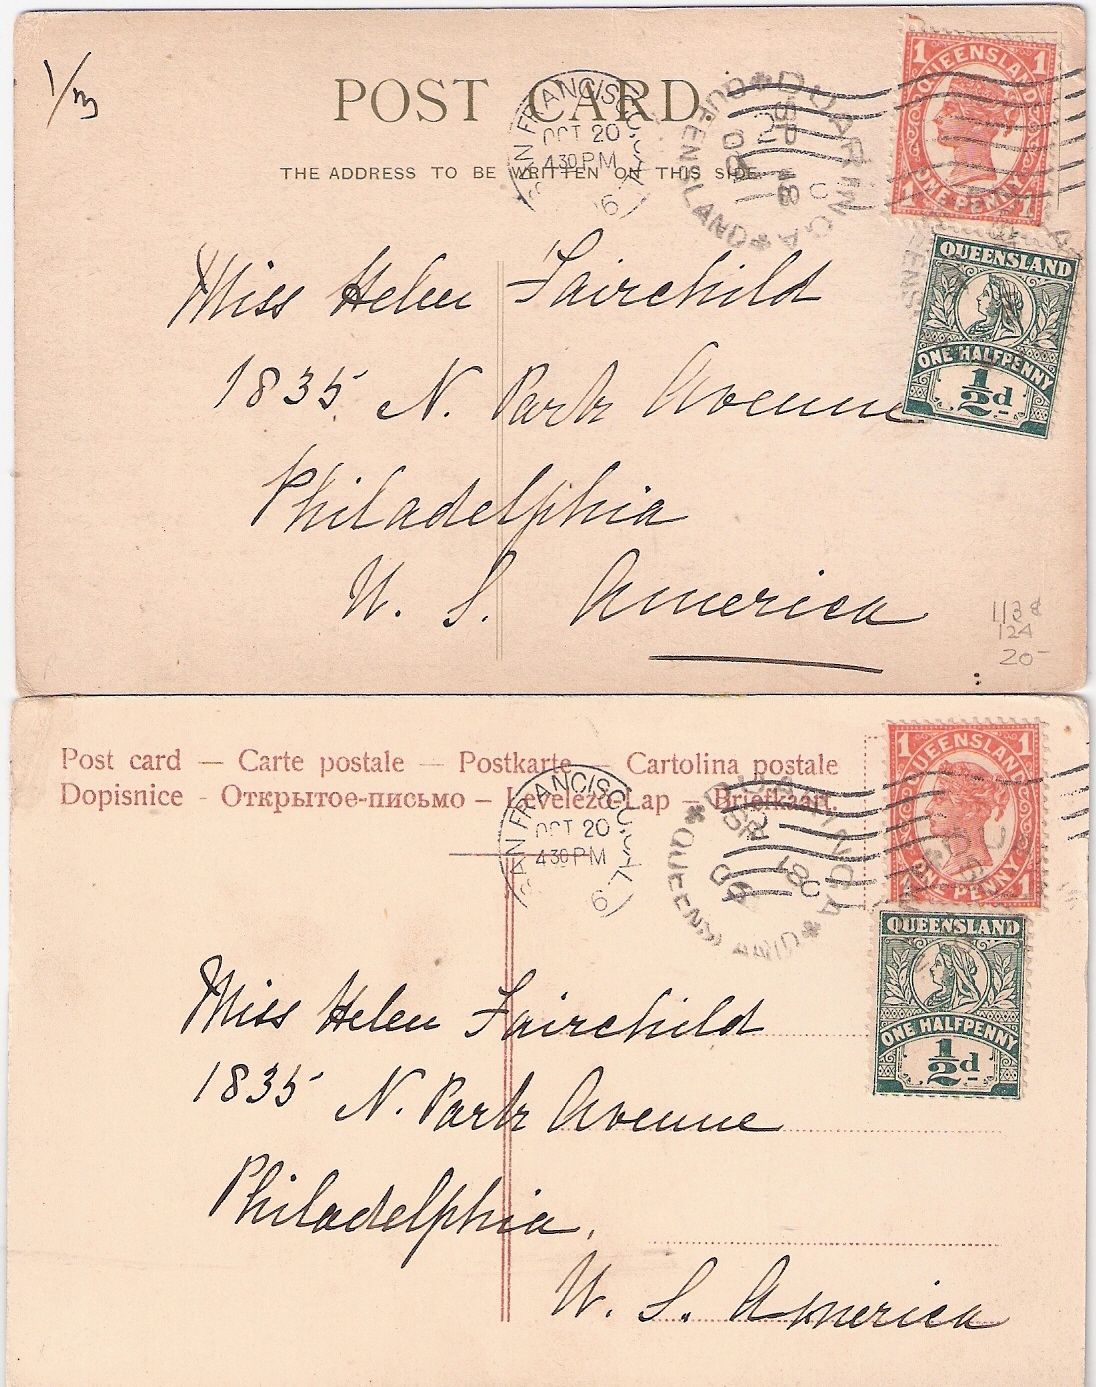 1/3
POST CARD
THE ADDRESS TO BE WRITTEN ON THIS SIDE
SAN FRANCISCO, CAL.
OCT 20
430 PM
6
DUARINGA
QUEENSLAND
SP 18
C
1 QUEENSLAND 1
1 ONE PENNY 1
QUEENSLAND
ONE HALFPENNY
1/2d
Miss Helen Fairchild
1835 N. Park Avenue
Philadelphia
U. S. America
113 &
124
20-
Post card — Carte postale — Postkarte — Cartolina postale
Dopisnice - Открытое-письмо — Levelező-Lap — Briefkaart.
SAN FRANCISCO, CAL.
OCT 20
430 PM
6
DUARINGA
QUEENSLAND
18
C
1 QUEENSLAND 1
ONE PENNY 1
QUEENSLAND
ONE HALFPENNY
1/2d
Miss Helen Fairchild
1835 N. Park Avenue
Philadelphia,
U. S. America